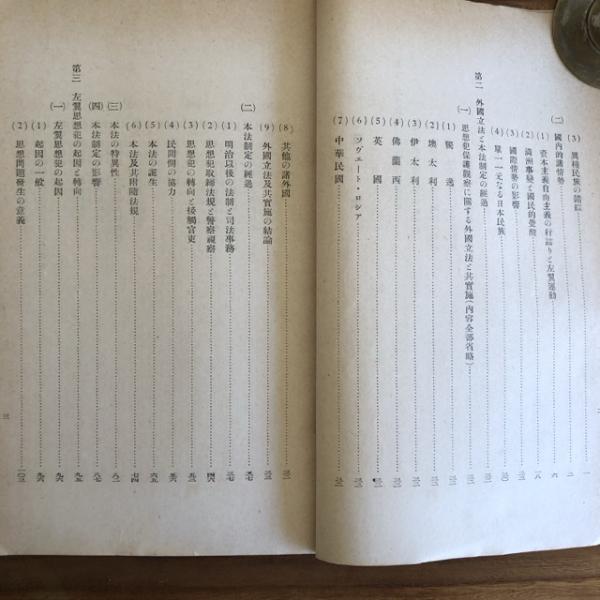 (3) 異種民族の諸
(二) 國内的諸情勢
(1) 資本主義自由主義の行詰りと左翼運動 六
(2) 滿洲事變と國民的覺醒 一八
(3) 國際情勢の影響
(4) 單一元なる日本民族
第二 外國立法と本法制定の經過
(一) 思想犯保護觀察に關する外國立法と其實施(内容全部省略)
(1) 獨逸
(2) 墺太利
(3) 伊太利
(4) 佛蘭西
(5) 英國
(6) ソヴエート・ロシア
(7) 中華民國
(8) 其他の諸外國
(9) 外國立法及其實施の結論
(二) 本法制定の經過
(1) 明治以後の法制と司法事務
(2) 思想犯取締法規と警察視察 四六
(3) 思想犯の轉向と接觸官吏 五三
(4) 民間側の協力 五六
(5) 本法の誕生 六五
(6) 本法及其附隨法規 七四
(三) 本法の特異性 八一
(四) 本法制定の影響 八七
第三 左翼思想犯の起因と轉向 九五
(一) 左翼思想犯の起因 九六
(1) 起因の一般 九六
(2) 思想問題發生の意義 一〇三
三